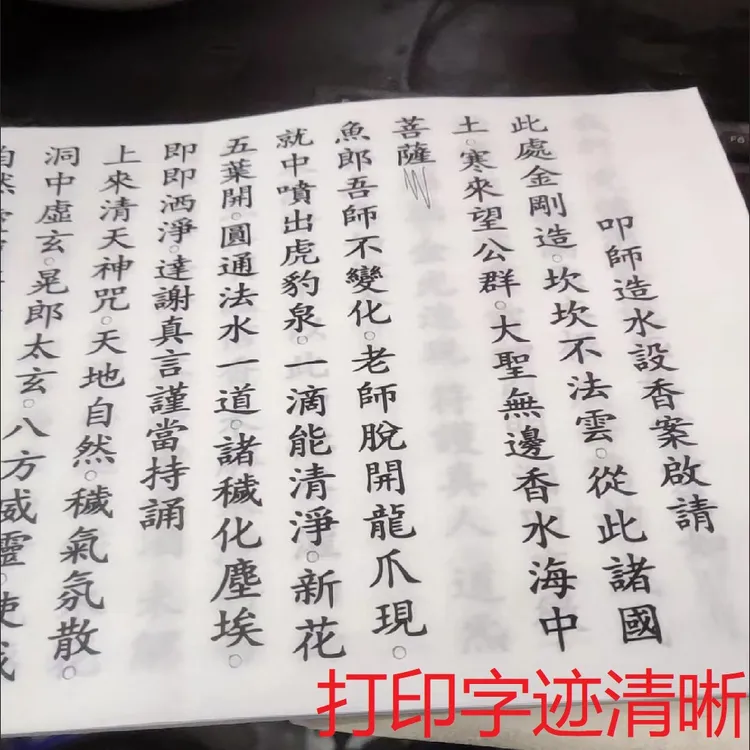 叩師造水設香案啟請
此處金剛造。坎坎不法雲。從此諸國
土。寒來望公群。大聖無邊香水海中
菩薩
魚郎吾師不變化。老師脫開龍爪現。
就中噴出虎豹泉。一滴能清淨。新花
五葉開。圓通法水一道。諸穢化塵埃。
即即洒淨。達謝真言謹當持誦
上來清天神咒。天地自然。穢氣氛散。
洞中虛玄。晃郎太玄。八方威靈。使我
自然
打印字迹清晰
F6